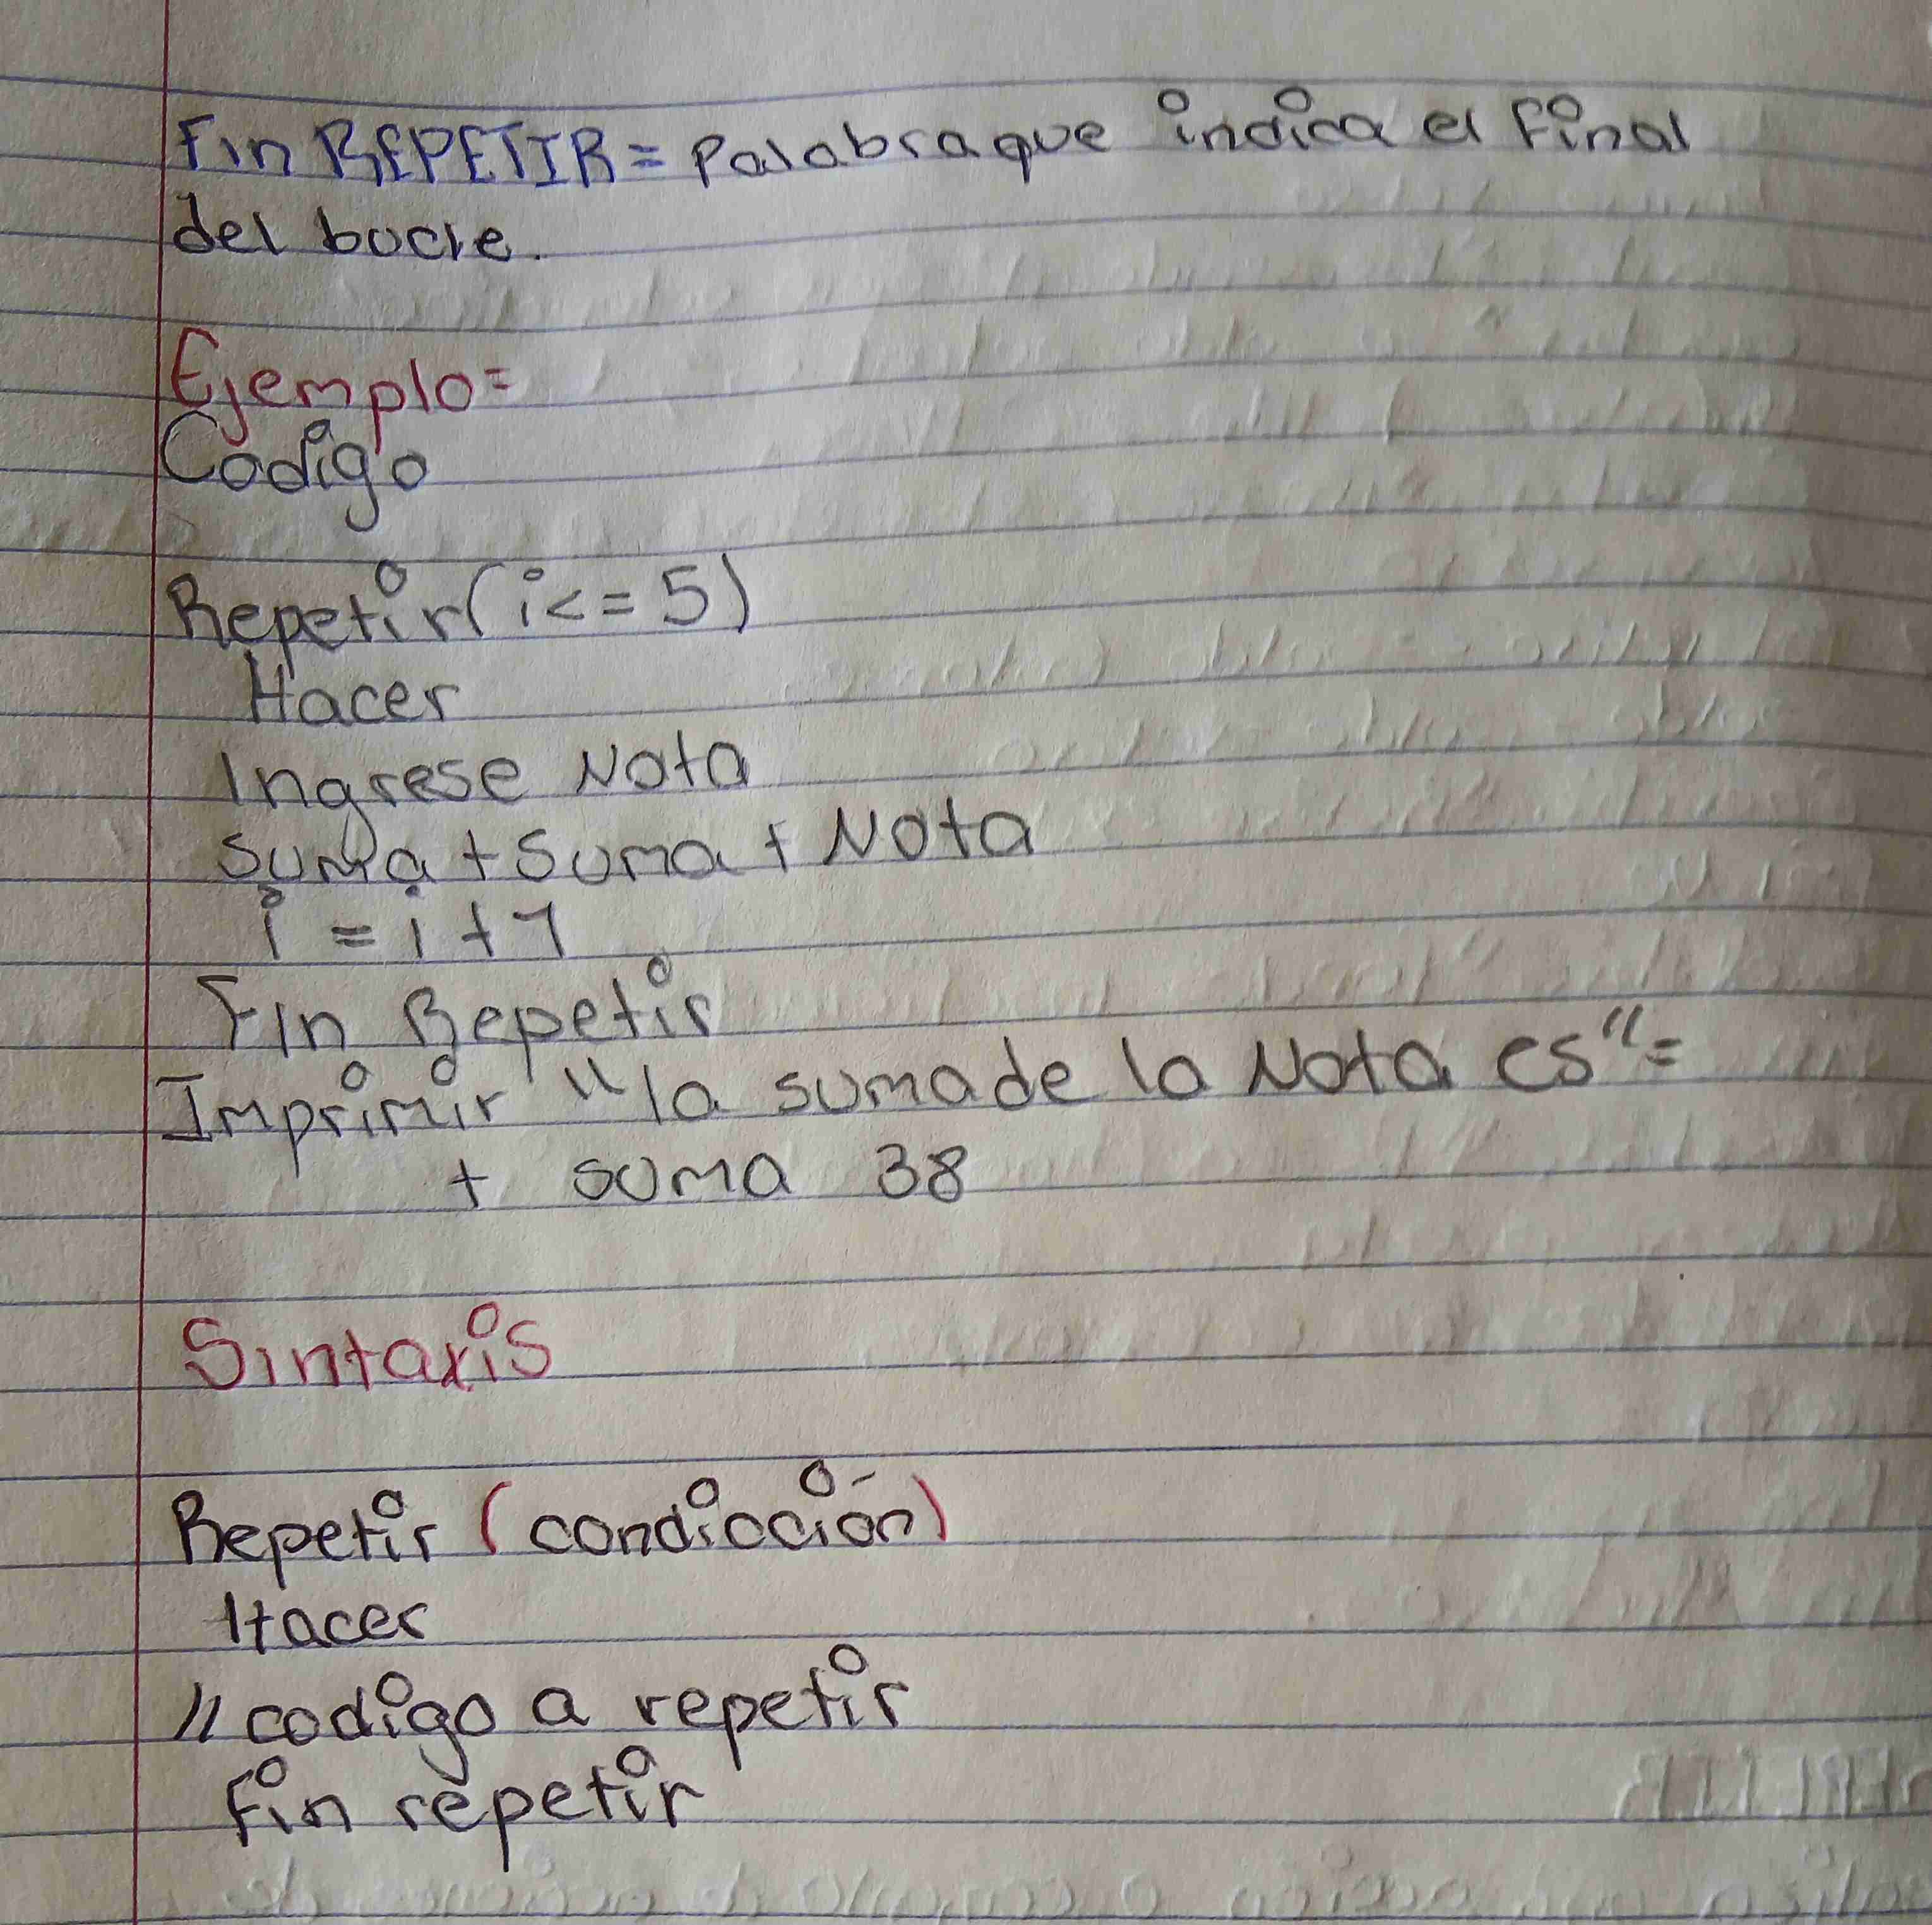 Fin REPETIR = Palabra que indica el Final
del bucle.
Ejemplo=
Codigo
Repetir (i<=5)
Hacer
Ingrese Nota
suma + suma + Nota
i = i + 1
Fin Repetir
Imprimir "la suma de la Nota es"=
+ suma 38
Sintaxis
Repetir (condicción)
Hacer
// codigo a repetir
Fin repetir